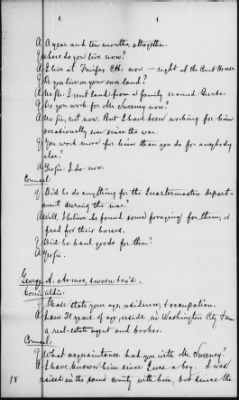 A A year and ten months, altogether.
Q Where do you live now?
A I live at Fairfax C.H. now - right at the Court House.
Q Do you live on your own land?
A No sir, I rent land from a family named
Q Do you work for Mr. Sweeney now?
A No sir, not now. But I have been working for him
occasionally ever since the war.
Q You work more for him than you do for anybody
else?
A Yes sir I do now.
Counsel:
Q Did he do anything for the Quartermaster's depart-
ment during the war?
A Well, I believe he found some foraging for them, or
feed for their horses.
Q Did he haul goods for them?
A Yes sir.
George A. Armes, sworn &c.
Comr.
Q Please state your age, residence, & occupation.
A I am 31 years of age, reside in Washington City I am
a real-estate agent and broker.
Counsel:
Q What acquaintance had you with Mr. Sweeney?
A I have known him since I was a boy. I was
raised in the same county with him, but since the
18